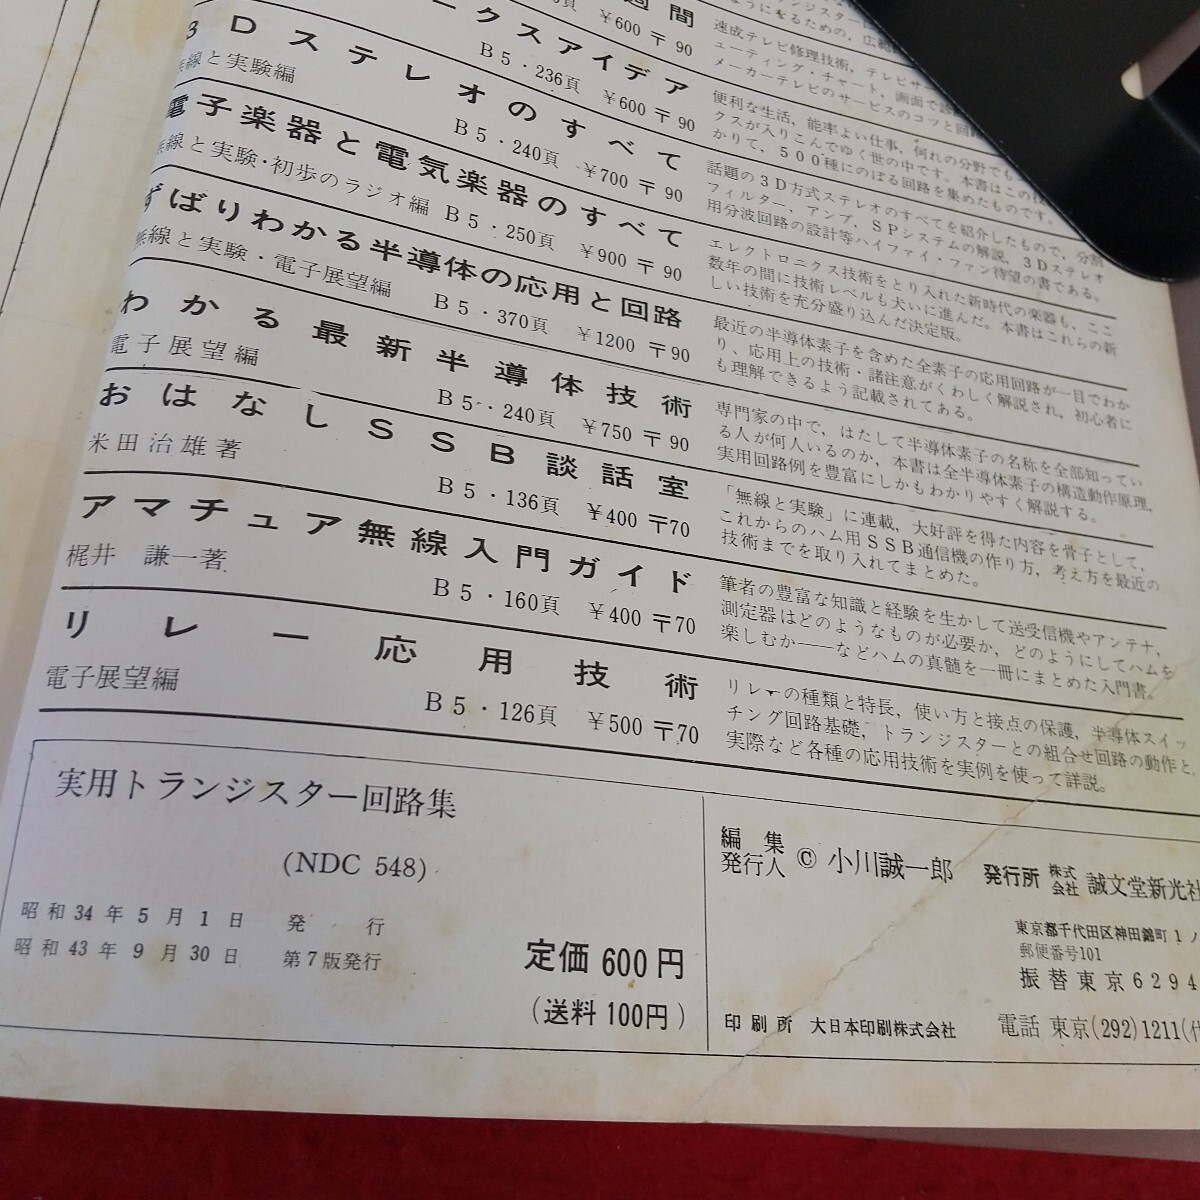 週間
￥600 〒90
ークスアイデア
B5・236頁 ￥600 〒90
3Dステレオのすべて
無線と実験編
B5・240頁 ￥700 〒90
電子楽器と電気楽器のすべて
無線と実験・初歩のラジオ編 B5・250頁 ￥900 〒90
ずばりわかる半導体の応用と回路
無線と実験・電子展望編 B5・370頁 ￥1200 〒90
わかる最新半導体技術
電子展望編
B5・240頁 ￥750 〒90
おはなしSSB談話室
米田治雄著
B5・136頁 ￥400 〒70
アマチュア無線入門ガイド
梶井 謙一著
B5・160頁 ￥400 〒70
リレー応用技術
電子展望編
B5・126頁 ￥500 〒70
うになるための，広範
速成テレビ修理技術，テレビサー
ューティング・チャート，画面で診
メーカーテレビのサービスのコツと回路
便利な生活，能率よい仕事，何れの分野でも
クスが入りこんでゆく世の中です。本書はこの技
かりて，500種にのぼる回路を集めたものです。
話題の3D方式ステレオのすべてを紹介したもので，分割
フィルター，アンプ，SPシステムの解説，3Dステレオ
用分波回路の設計等ハイファイ・ファン待望の書である。
エレクトロニクス技術をとり入れた新時代の楽器も，ここ
数年の間に技術レベルも大いに進んだ。本書はこれらの新
しい技術を充分盛り込んだ決定版。
最近の半導体素子を含めた全素子の応用回路が一目でわか
り，応用上の技術・諸注意がくわしく解説され，初心者に
も理解できるよう記載されてある。
専門家の中で，はたして半導体素子の名称を全部知ってい
る人が何人いるのか，本書は全半導体素子の構造動作原理，
実用回路例を豊富にしかもわかりやすく解説する。
「無線と実験」に連載，大好評を得た内容を骨子として，
これからのハム用SSB通信機の作り方，考え方を最近の
技術までを取り入れてまとめた。
筆者の豊富な知識と経験を生かして送受信機やアンテナ，
測定器はどのようなものが必要か，どのようにしてハムを
楽しむか――などハムの真髄を一冊にまとめた入門書。
リレーの種類と特長，使い方と接点の保護，半導体スイッ
チング回路基礎，トランジスターとの組合せ回路の動作と，
実際など各種の応用技術を実例を使って詳説。
実用トランジスター回路集
(NDC 548)
昭和34年5月1日 発行
昭和43年9月30日 第7版発行
定価 600円
(送料 100円)
編集
発行人 © 小川誠一郎
発行所 株式会社 誠文堂新光社
東京都千代田区神田錦町1ノ
郵便番号101
振替東京6294
印刷所 大日本印刷株式会社
電話 東京(292)1211(代